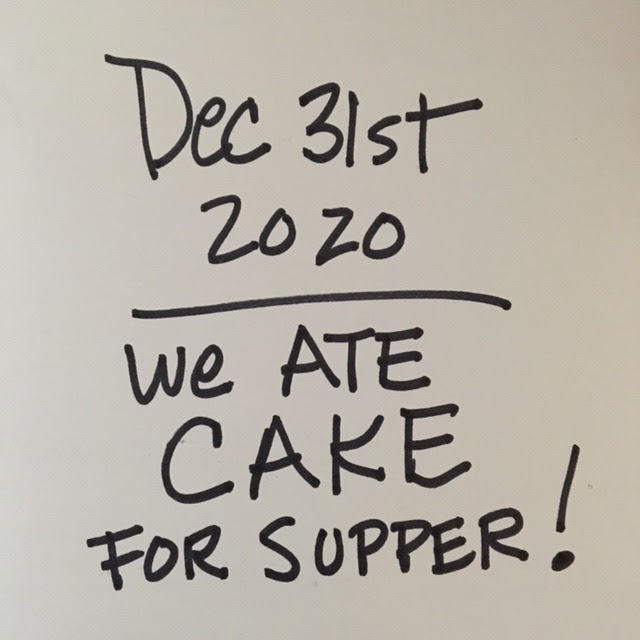 Dec 31st
2020
We ATE
CAKE
FOR SUPPER!